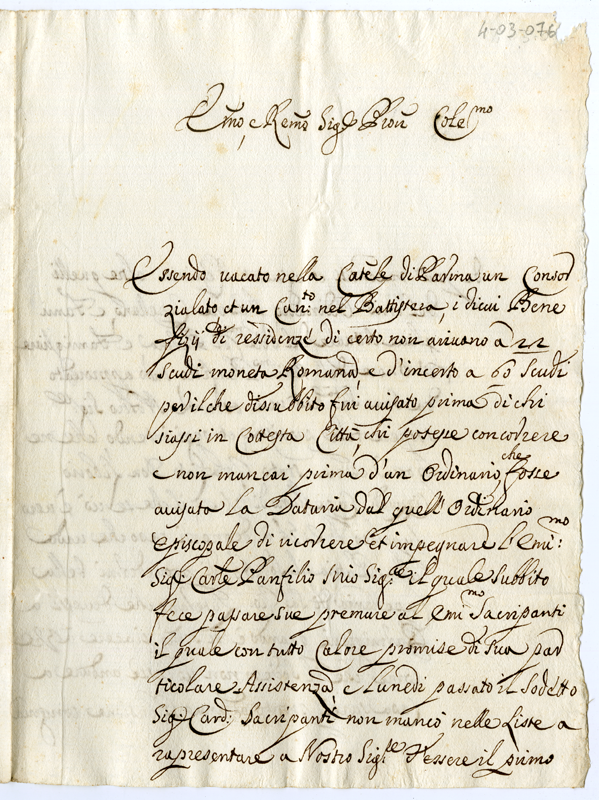 4-03-076
Emo, e Remo Sigre Pron Colemo
Essendo vacato nella Catēle di Parma un Consor
zialato et un Canto: nel Battistera, i di cui Bene
fizij di ressidenze di certo non arivano à 22
scudi moneta Romana, e d'incerto a 60 scudi
per il che dissubbito fui avisato prima di chi
siassi in Cottesta Città, chi potesse concorrere
e non mancai prima d'un Ordinario, che fosse
avisata la Dataria dal quell'Ordinario
episcopale di ricorrere et impegnare l'Emimo:
Sigr: Carle Panfilio suo Sigre: il quale subbito
fece passare sue premure al Emimo Sacripanti
il quale con tutto Calore promise di sua par
ticolare Assistenza, e Lunedì passato il Sodetto
Sigr Card: Sacripanti non mancò nelle Liste a
rapresentare a Nostro Sigre l'essere il primo